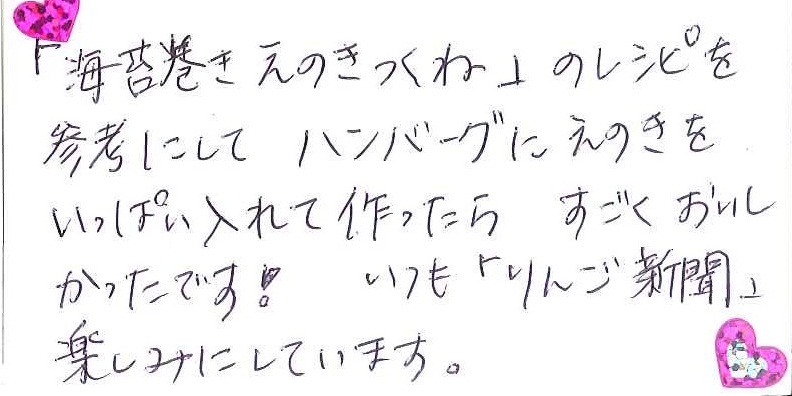 「海苔巻きえのきつくね」のレシピを
参考にして ハンバーグにえのきを
いっぱい入れて作ったら すごくおいし
かったです! いつも「りんご新聞」
楽しみにしています。